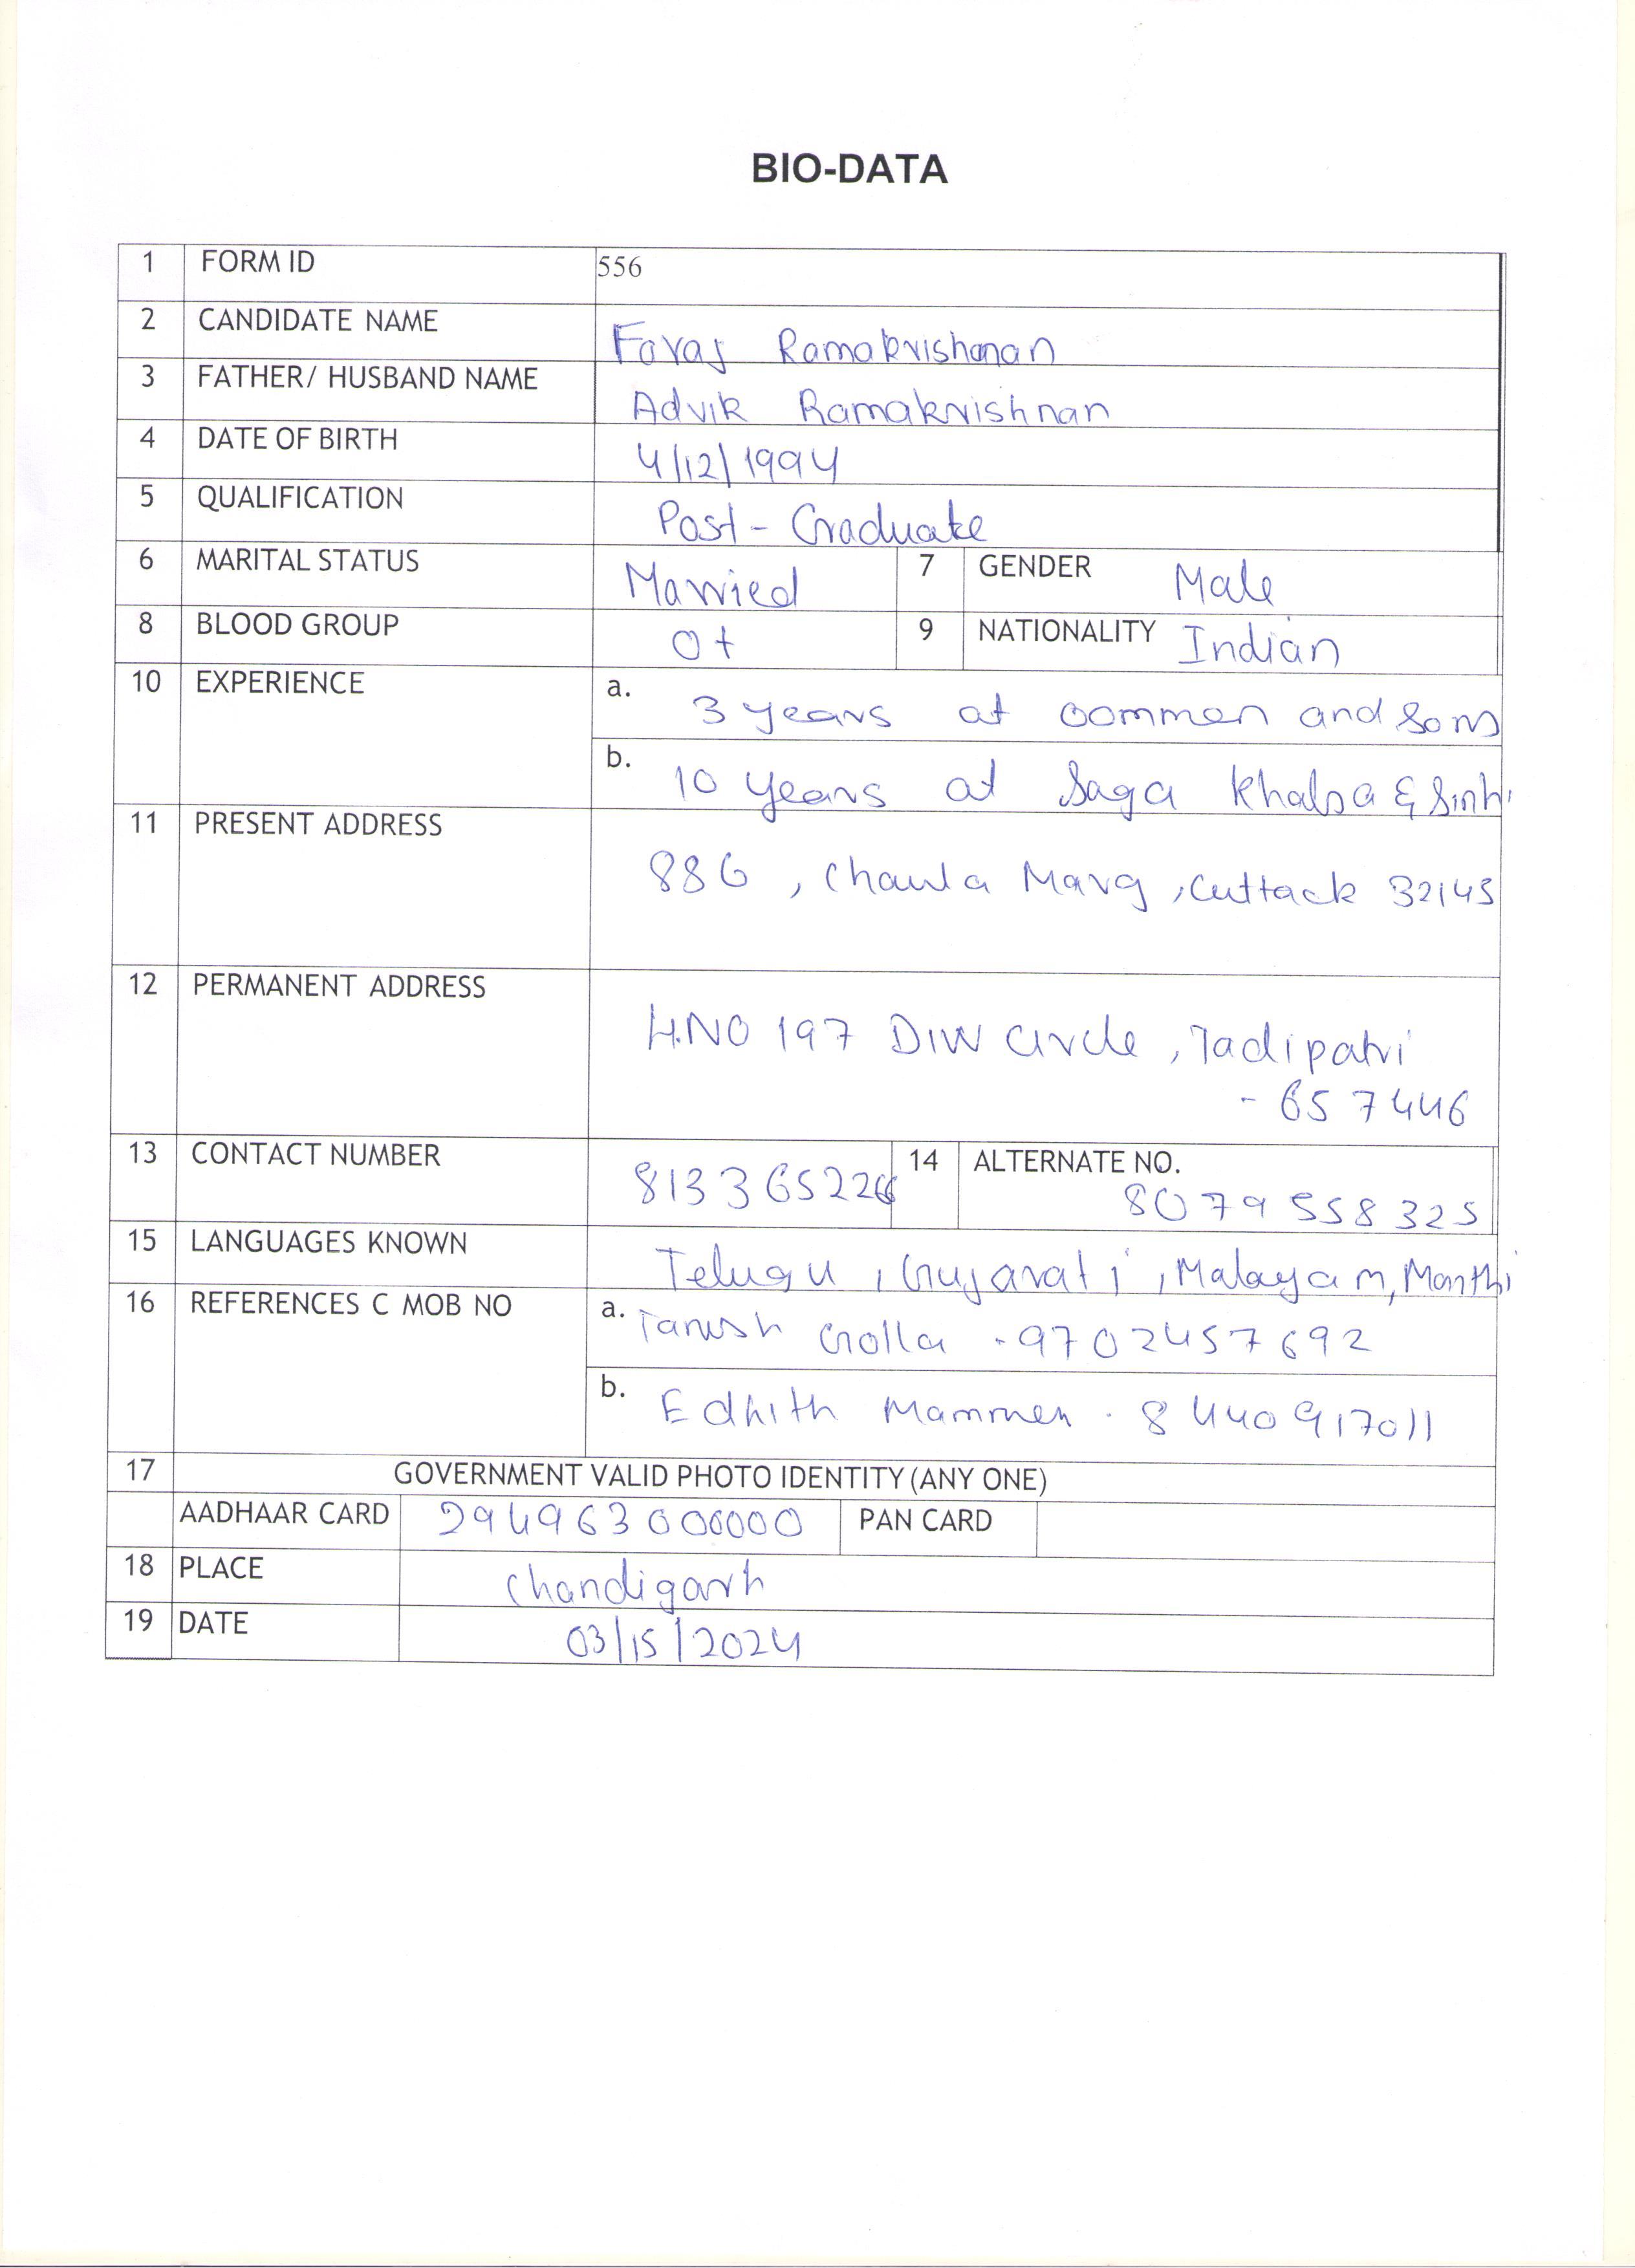 BIO-DATA
1 FORM ID 556
2 CANDIDATE NAME Foraj Ramakrishanan
3 FATHER/ HUSBAND NAME Advik Ramakrishnan
4 DATE OF BIRTH 4/12/1994
5 QUALIFICATION Post - Graduate
6 MARITAL STATUS Married 7 GENDER Male
8 BLOOD GROUP O+ 9 NATIONALITY Indian
10 EXPERIENCE a. 3 years at oommen and Sons
b. 10 years at Saga Khalsa &
11 PRESENT ADDRESS
886, Chawla Marg, Cuttack 32145
12 PERMANENT ADDRESS
H.NO 197 DIW Circle, Tadipatri
- 657446
13 CONTACT NUMBER 813365226 14 ALTERNATE NO.
8079558325
15 LANGUAGES KNOWN Telugu, Gujarati, Malayam, Marthi
16 REFERENCES C MOB NO a. Tanush Golla - 9702457692
b. Edhith Mammen - 8440917011
17 GOVERNMENT VALID PHOTO IDENTITY (ANY ONE)
AADHAAR CARD 294963000000 PAN CARD
18 PLACE Chandigarh
19 DATE 03/15/2024